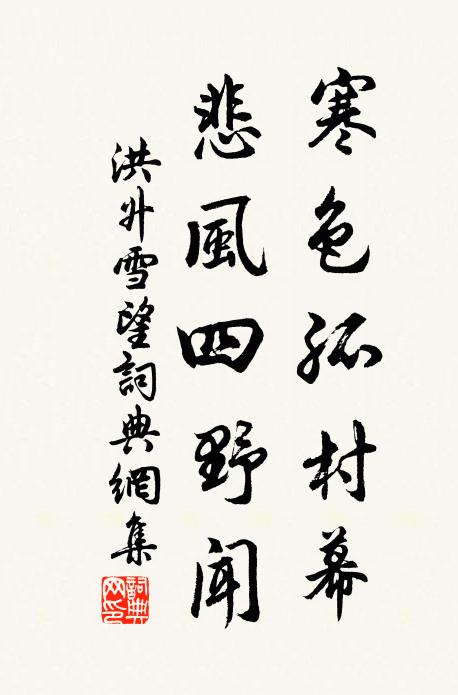 寒色孤村幕
悲風四野聞
洪升雪望詞典網集
詞典網印